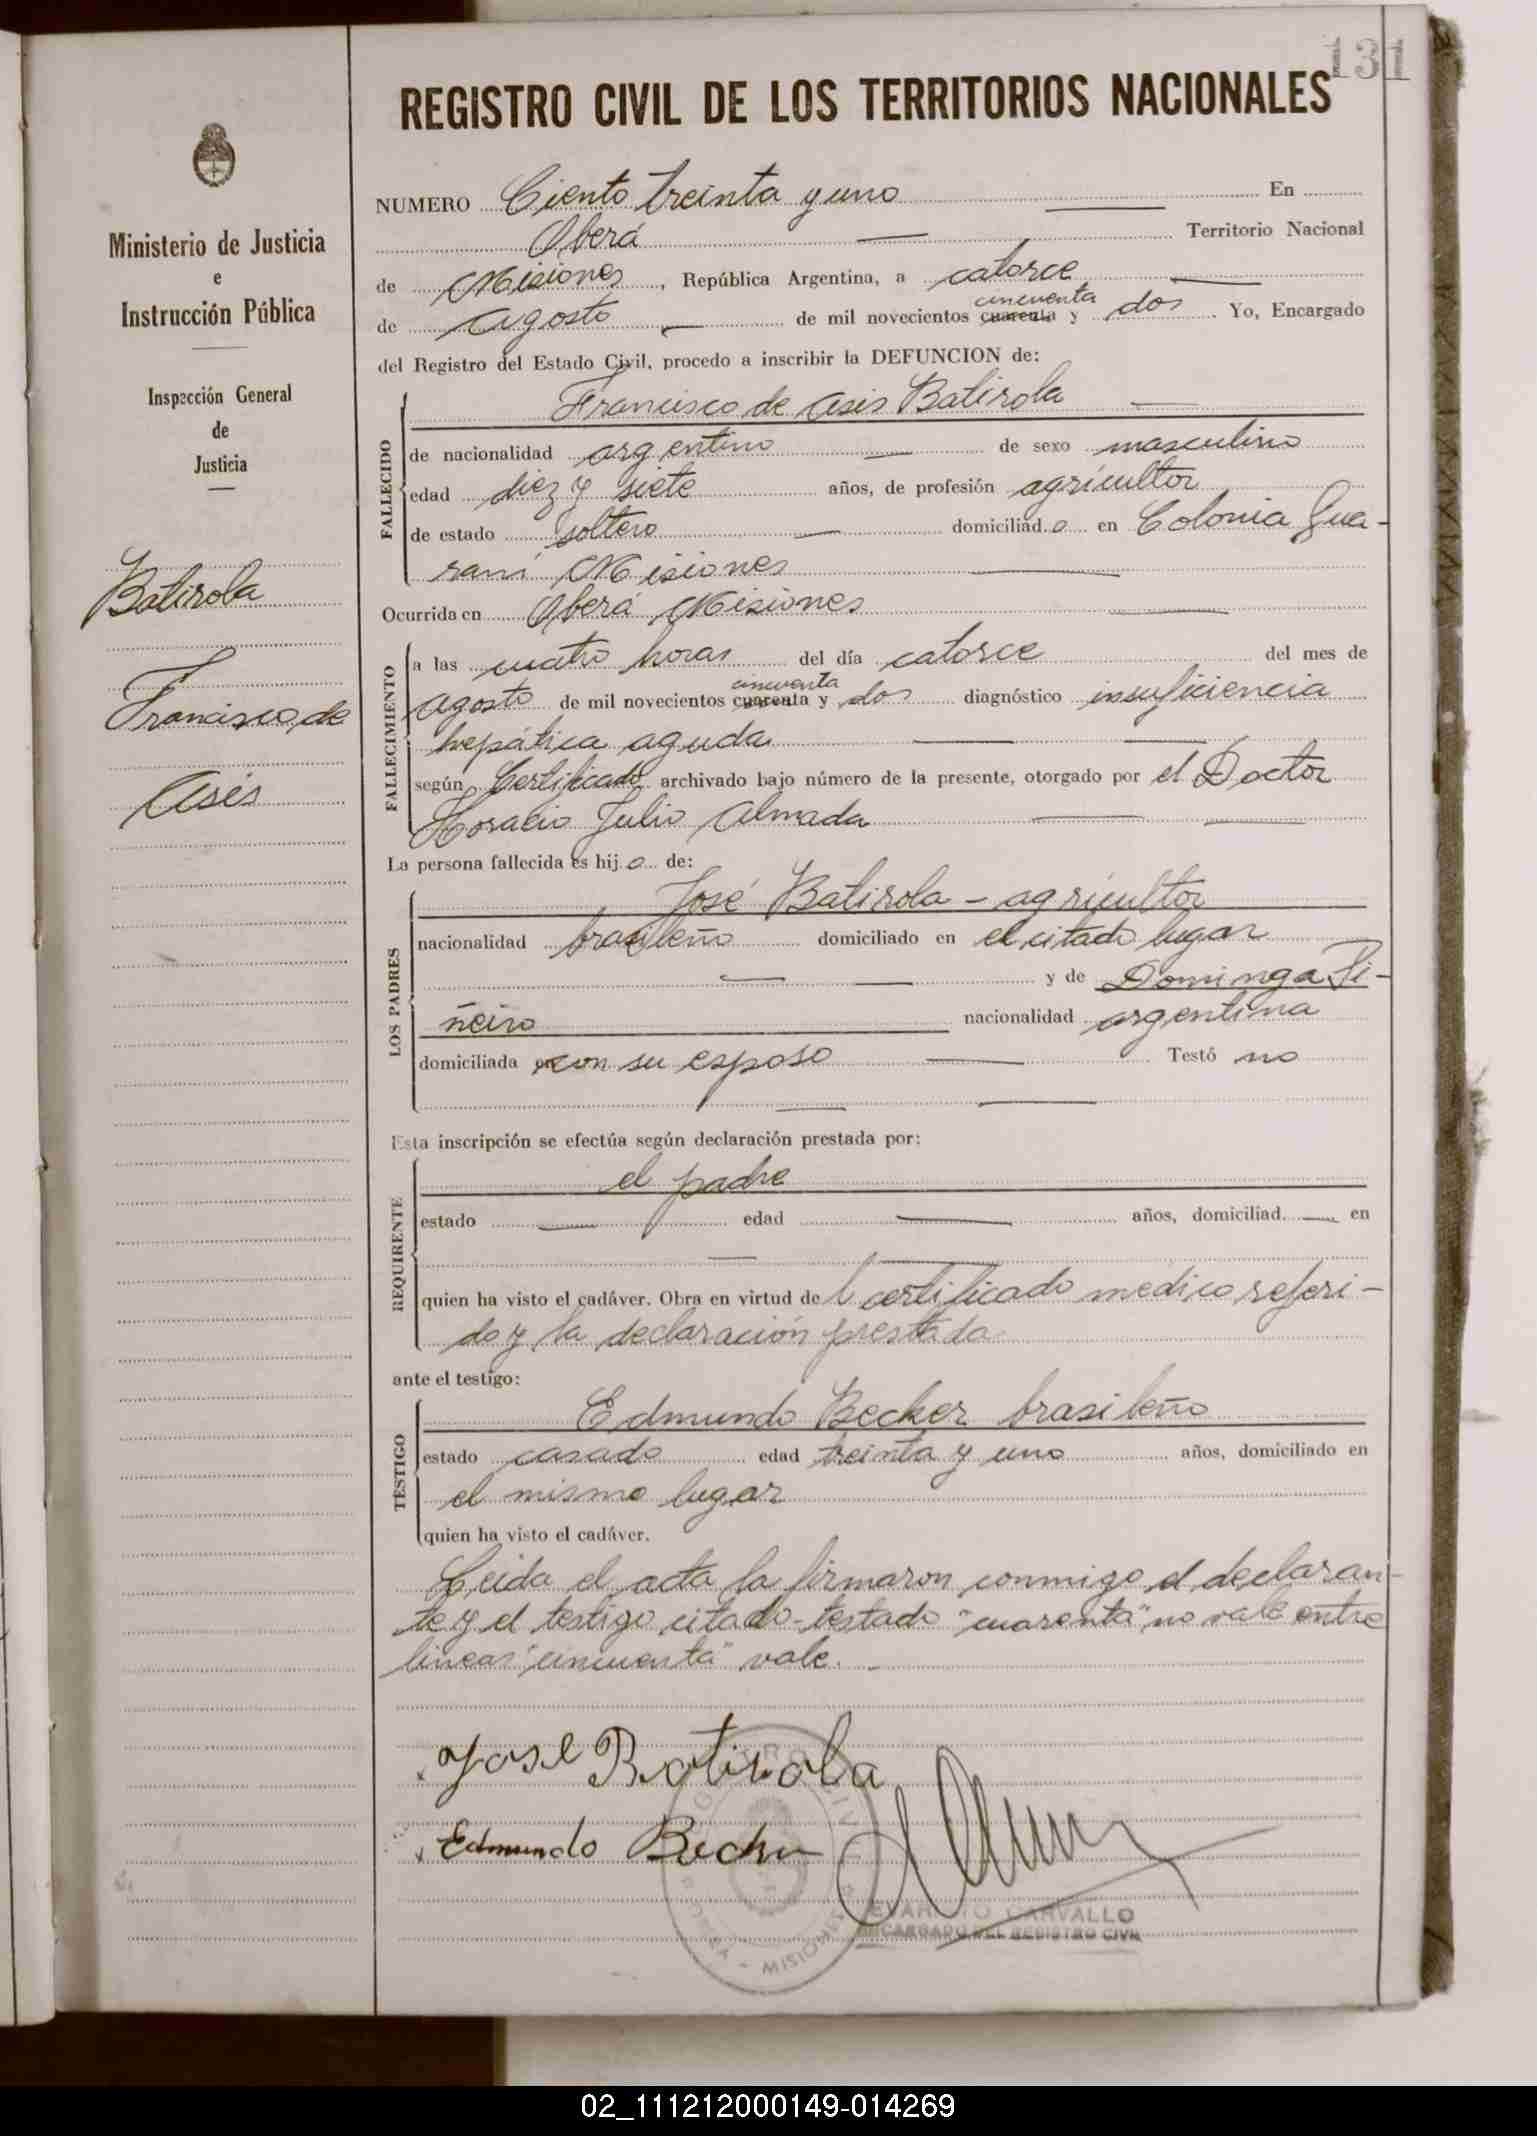 131
REGISTRO CIVIL DE LOS TERRITORIOS NACIONALES
Ministerio de Justicia
e
Instrucción Pública
Inspección General
de
Justicia
Batirola
Francisco de
Asis
NUMERO Ciento treinta y uno En
Oberá Territorio Nacional
de Misiones, República Argentina, a catorce
cincuenta
de Agosto de mil novecientos cuarenta y dos. Yo, Encargado
del Registro del Estado Civil, procedo a inscribir la DEFUNCION de:
FALLECIDO
Francisco de Asis Batirola
de nacionalidad argentino de sexo masculino
edad diez y siete años, de profesión agricultor
de estado soltero domiciliado en Colonia Gua-
raní Misiones
Ocurrida en Oberá Misiones
FALLECIMIENTO
a las cuatro horas del día catorce del mes de
cincuenta
agosto de mil novecientos cuarenta y dos diagnóstico insuficiencia
hepática aguda
según Certificado archivado bajo número de la presente, otorgado por el Doctor
Horacio Julio Almada
La persona fallecida es hijo de:
LOS PADRES
José Batirola - agricultor
nacionalidad brasileño domiciliado en el citado lugar
y de Dominga Pi-
ñeiro nacionalidad argentina
domiciliada en con su esposo Testó no
Esta inscripción se efectúa según declaración prestada por:
REQUIRENTE
el padre
estado edad años, domiciliad en
quien ha visto el cadáver. Obra en virtud del certificado medico referi-
do y la declaración prestada
ante el testigo:
TESTIGO
Edmundo Becker brasileño
estado casado edad treinta y uno años, domiciliado en
el mismo lugar
quien ha visto el cadáver.
Leida el acta la firmaron conmigo el declaran-
te y el testigo citado - testado "cuarenta" no vale entre
lineas "cincuenta" vale.
José Batirola
Edmundo Becker
REGISTRO CIVIL
OBERA - MISIONES
EVARISTO CARVALLO
ENCARGADO DEL REGISTRO CIVIL
02_111212000149-014269